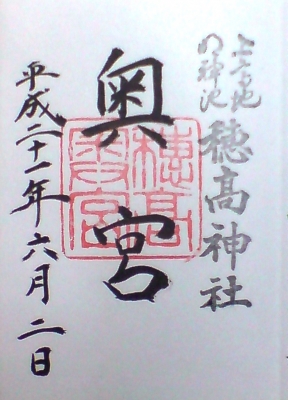 上高地
明神池
穂高神社
奥宮
穂高
奥宮
平成二十一年六月二日